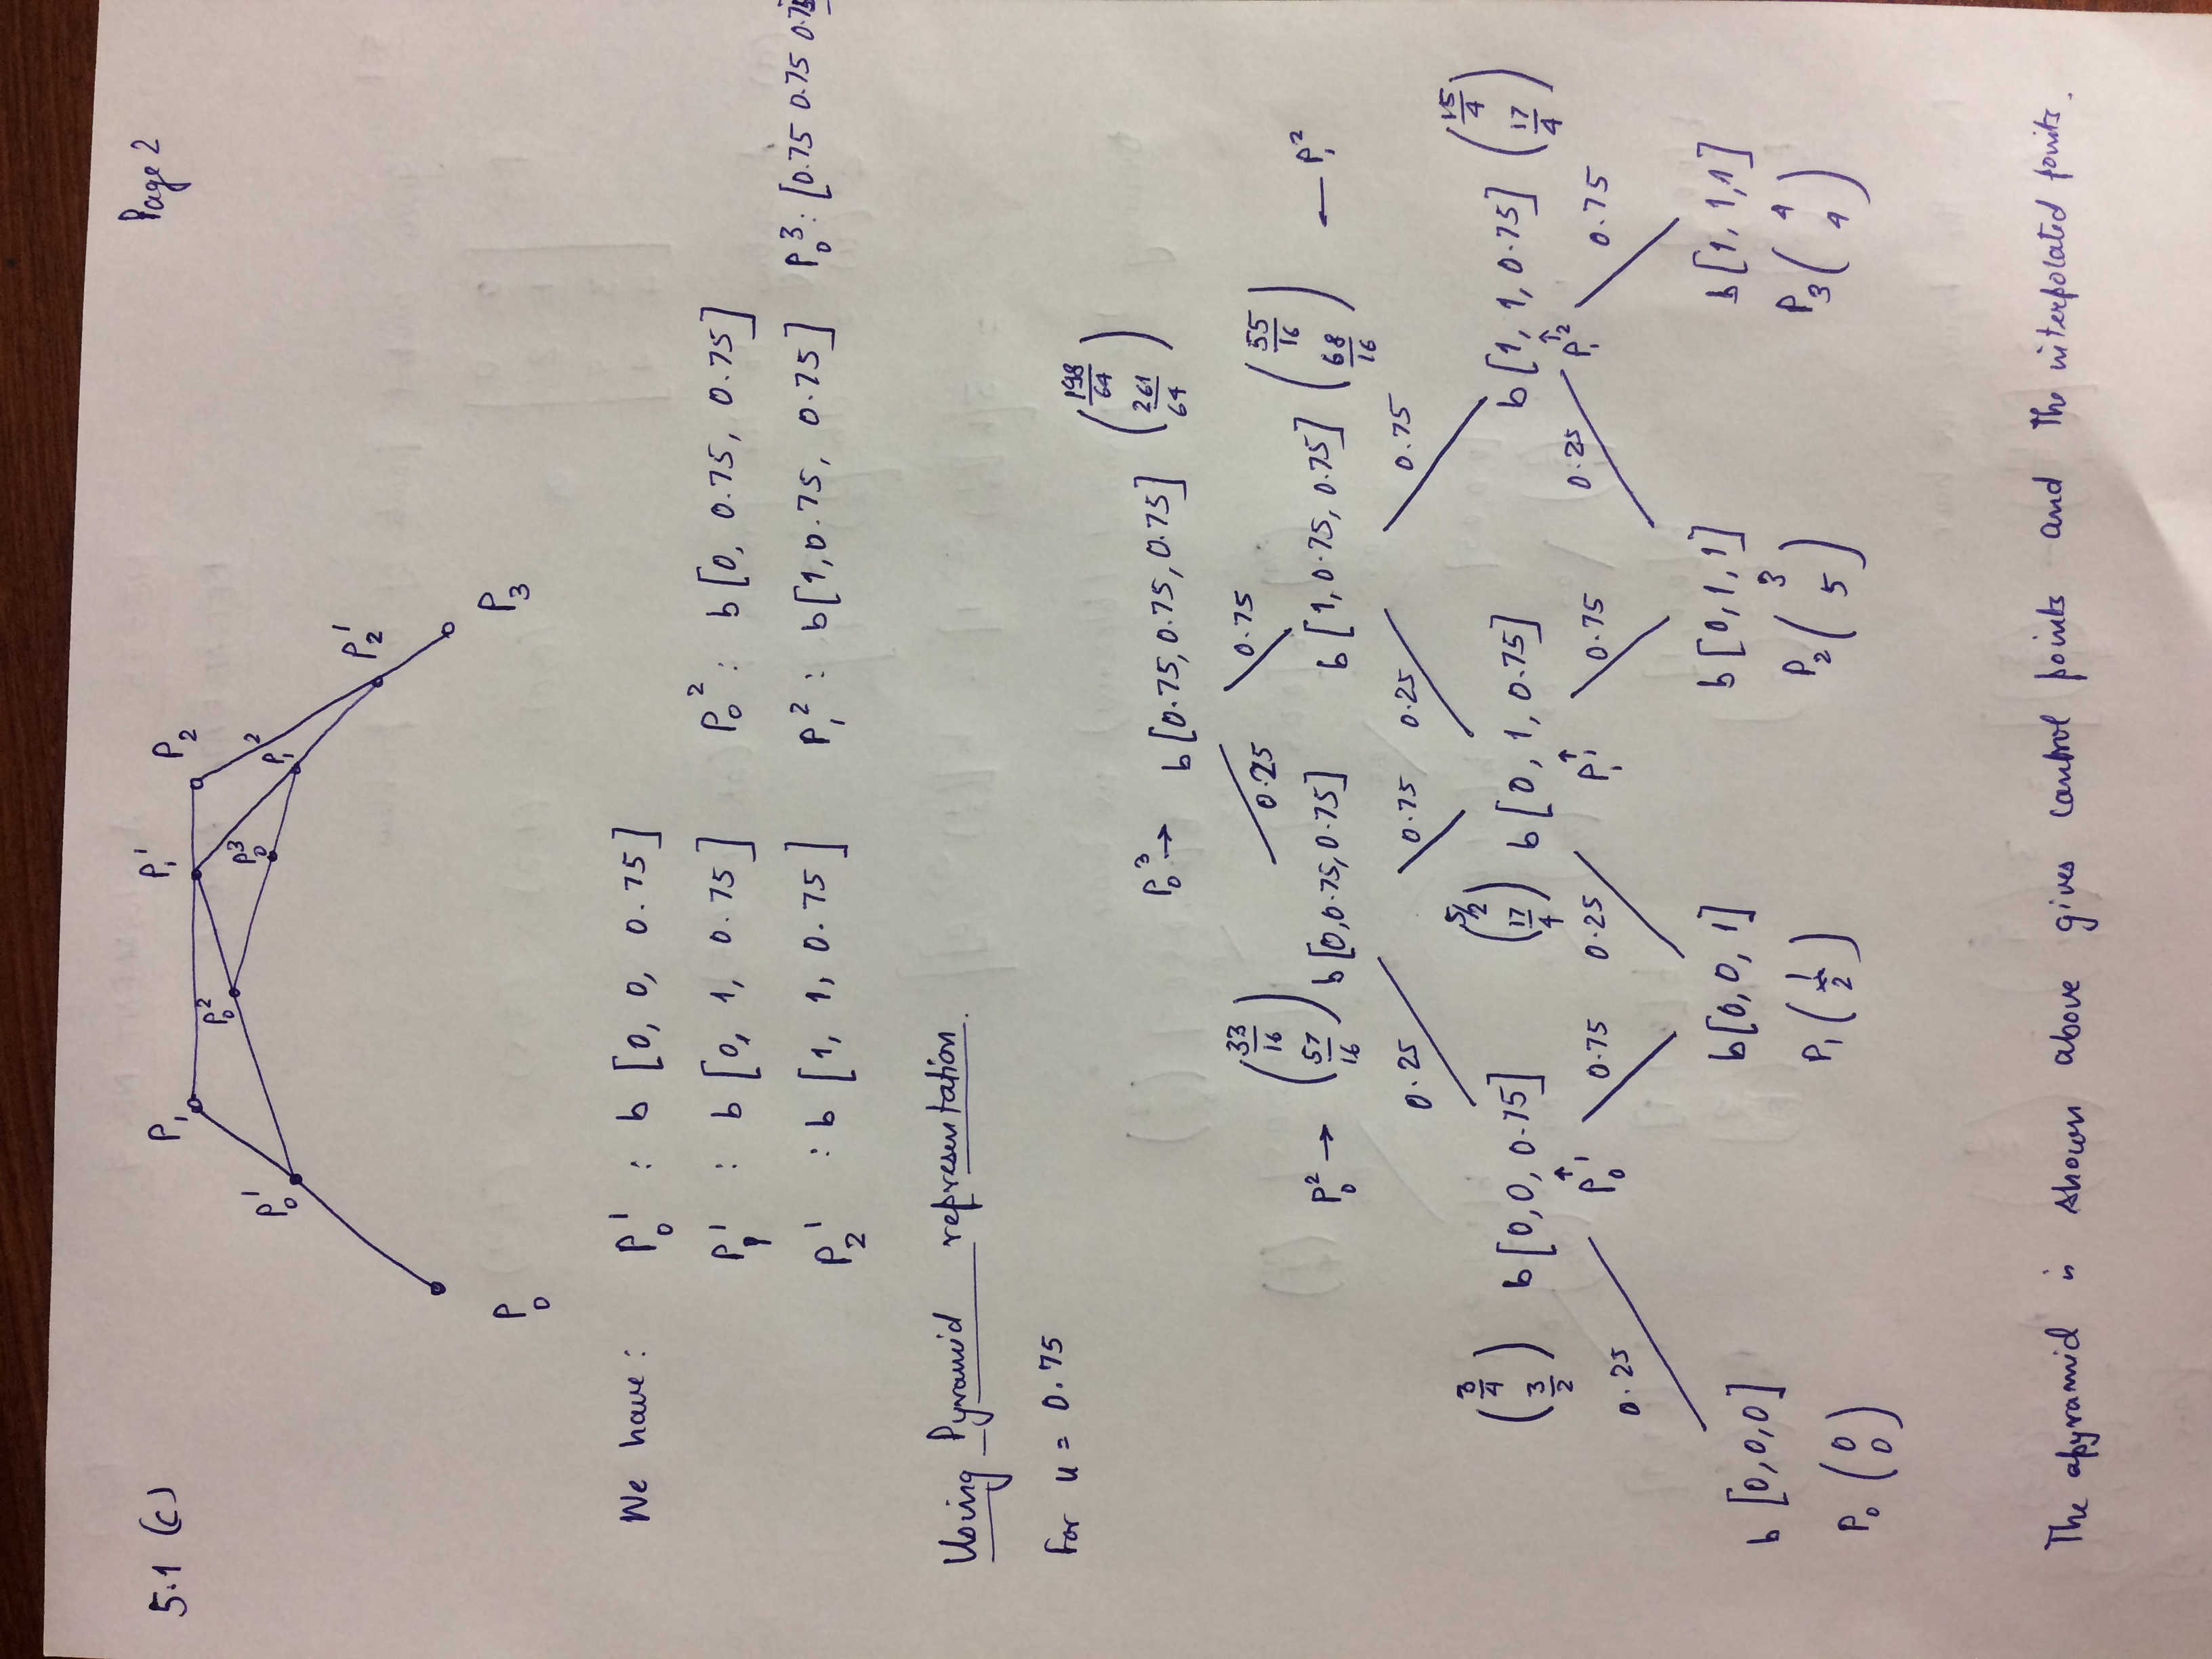 5.1 (c)
Page 2
P₁ P₁¹ P₂
P₀² P₀³ P₁²
P₀¹
P₂¹
P₀ P₃
We have : P₀¹ : b [0, 0, 0.75]
P₁¹ : b [0, 1, 0.75] P₀² : b[0, 0.75, 0.75]
P₂¹ : b [1, 1, 0.75] P₁² : b[1, 0.75, 0.75] P₀³ : [0.75 0.75 0.75
Using Pyramid representation.
For u = 0.75
P₀³ → b [0.75, 0.75, 0.75] (198/64 261/64)
0.25 0.75
P₀² → (33/16 57/16) b [0, 0.75, 0.75] b [1, 0.75, 0.75] (55/16 68/16) ← P₁²
0.25 0.75 0.25 0.75
(3/4 3/2) b [0, 0, 0.75] (5/2 17/4) b [0, 1, 0.75] b [1, 1, 0.75] (15/4 17/4)
↑ P₀¹ ↑ P₁¹ ↑ P₁²
0.25 0.75 0.25 0.75 0.25 0.75
b [0, 0, 0] b [0, 0, 1] b [0, 1, 1] b [1, 1, 1]
P₀ (0 0) P₁ (1 2) P₂ (3 5) P₃ (4 4)
The apyramid is shown above gives control points and the interpolated points.